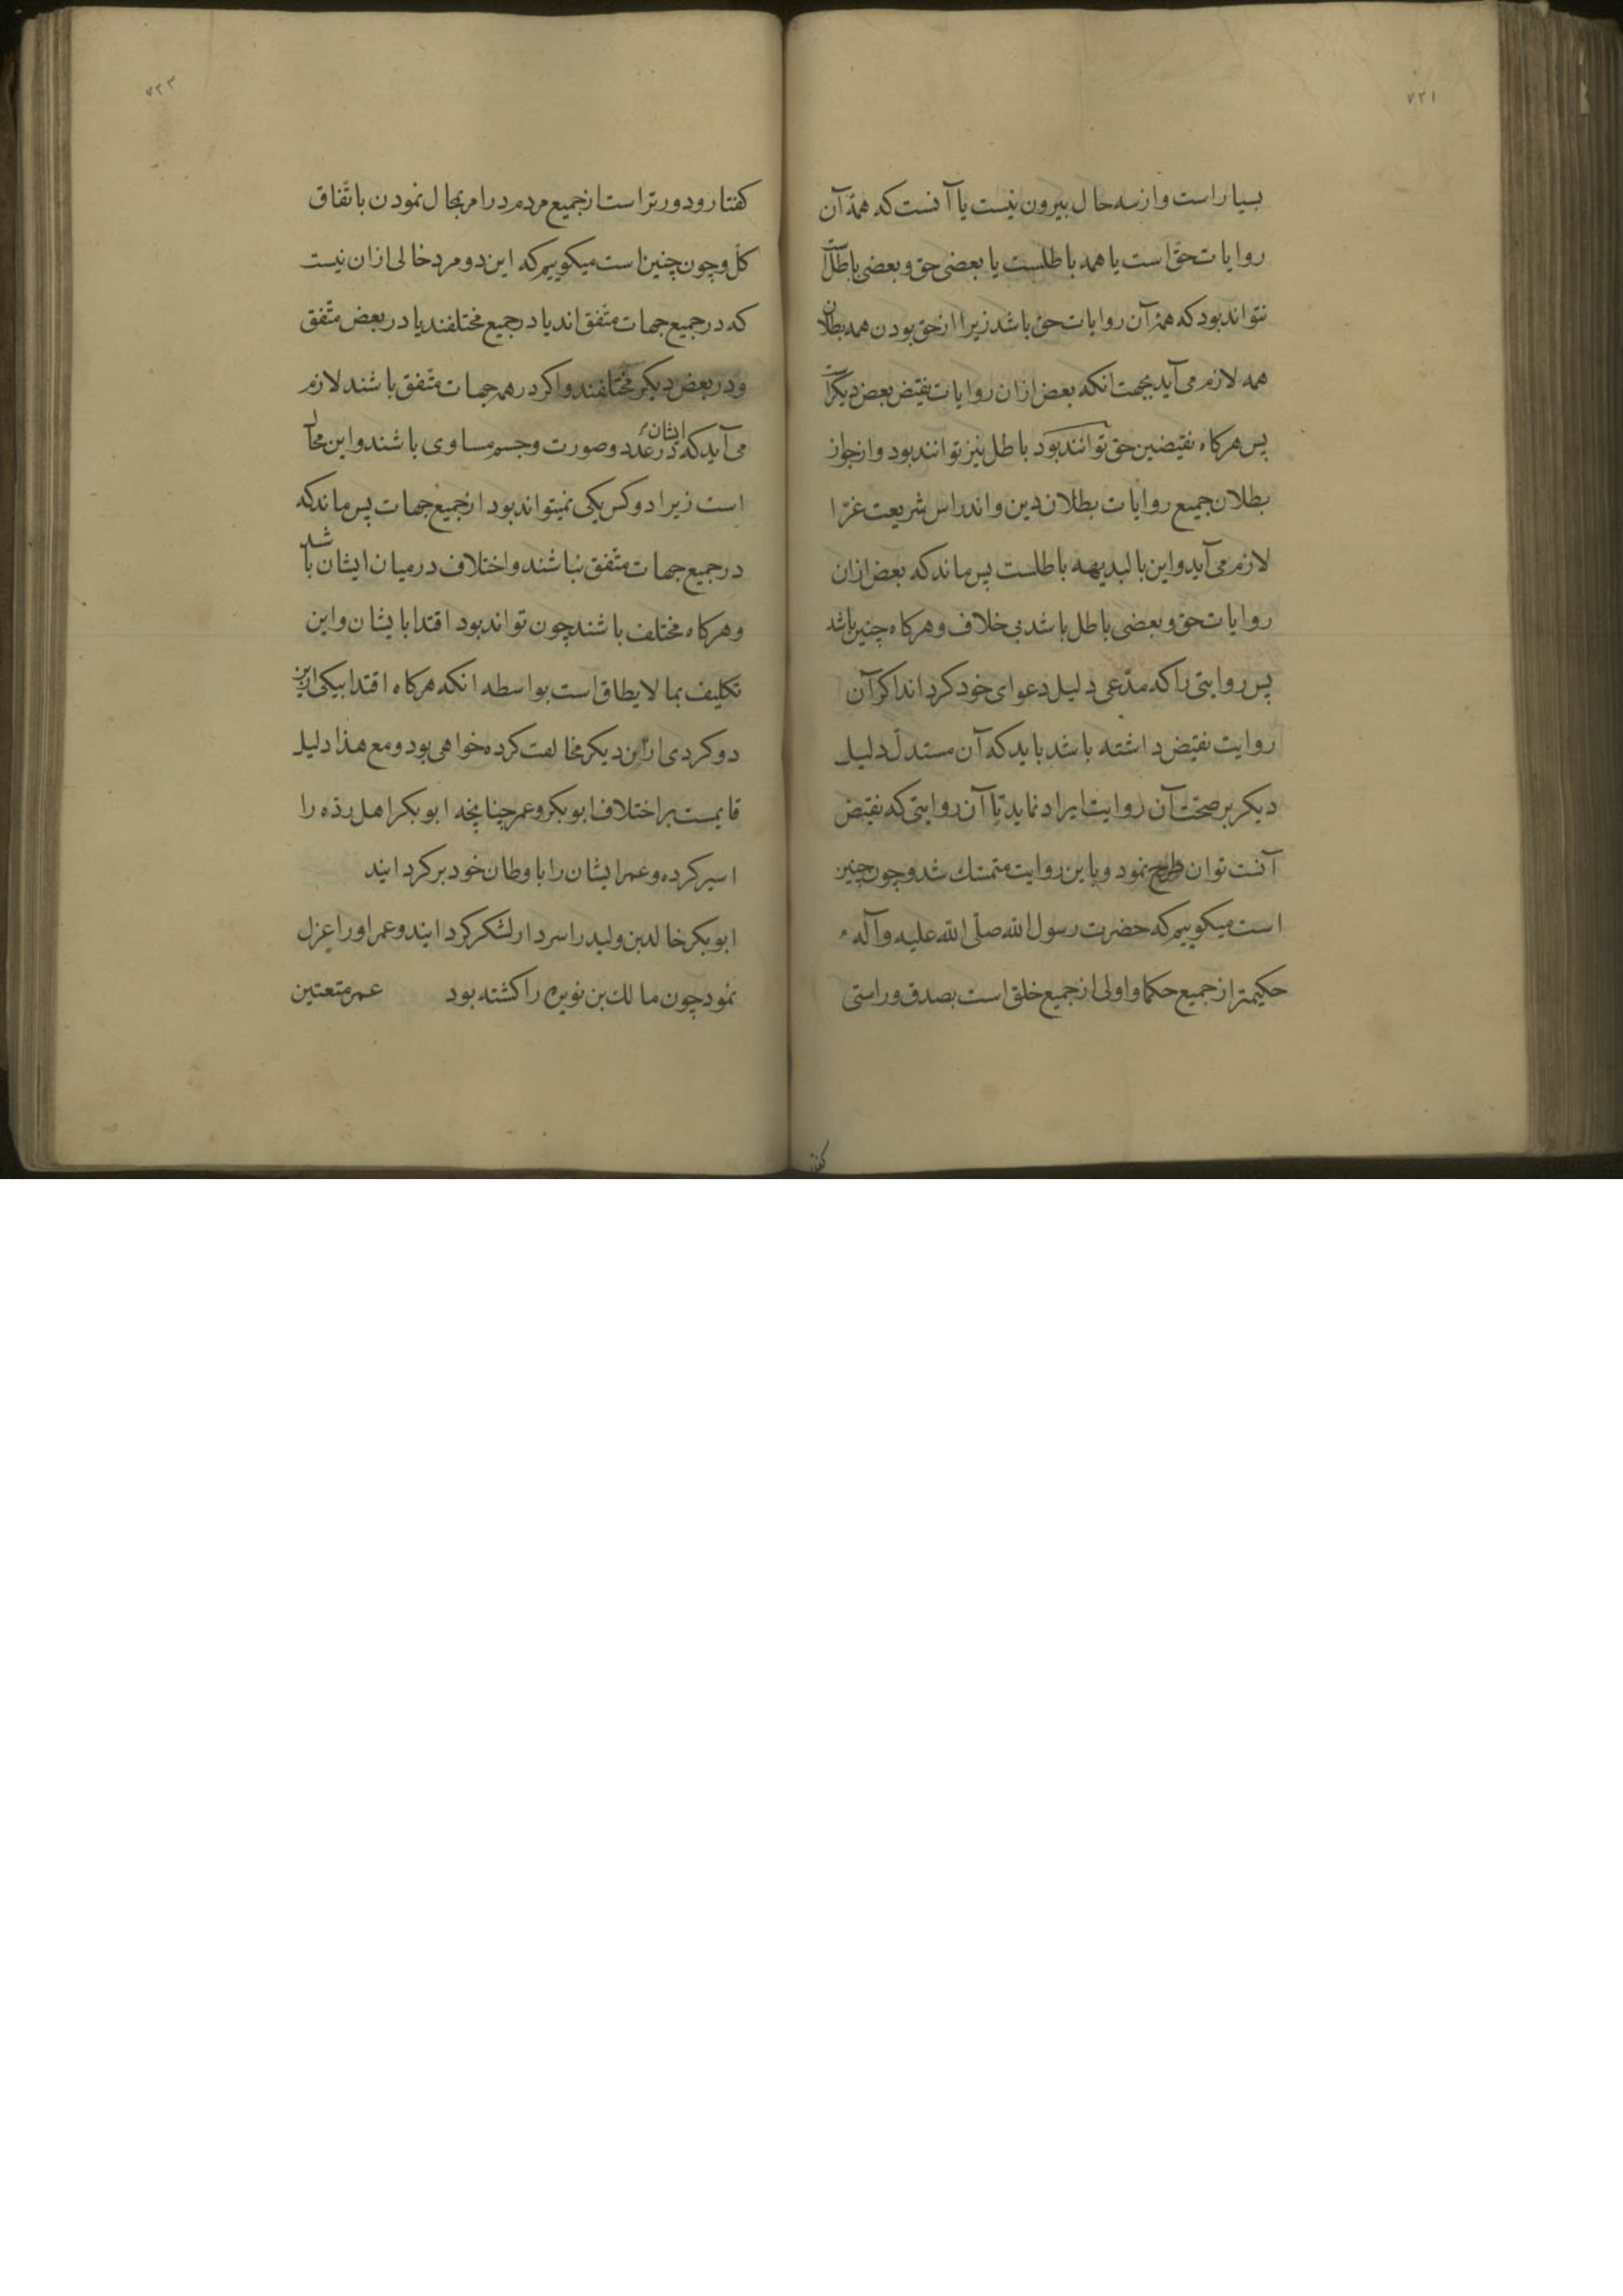 ۷۲۱
بسیار است و از سه حال بیرون نیست یا آنست که همهٔ آن
روایات حق است یا همه باطلست یا بعضی حق و بعضی باطل
نتواند بود که همهٔ آن روایات حق باشد زیرا از حق بودن همه بطلان
همه لازم می آید بجهت انکه بعض ازان روایات نقیض بعض دیکرست
پس هرکاه نقیضین حق توانند بود باطل نیز توانند بود و از جواز
بطلان جمیع روایات بطلان دین و اندراس شریعت غرّا
لازم می آید و این بالبدیهه باطلست پس ماند که بعض ازان
روایات حق و بعضی باطل باشد بی خلاف و هرکاه چنین باشد
پس روایتی را که مدّعی دلیل دعوای خود کرداند اکر آن
روایت نقیض داشته باشد باید که آن مستدلّ دلیل
دیکر بر صحّت آن روایت ایراد نماید تا آن روایتی که نقیض
آنست توان طرح نمود و باین روایت متمسّك شد و چون چنین
است میکوییم که حضرت رسول الله صلّی الله علیه و آله
حکیمتر از جمیع حکما و اولی از جمیع خلق است بصدق و راستی
کفتار
۷۲۲
کفتار و دورتر است از جمیع مردم در امر بمحال نمودن باتّفاق
کلّ و چون چنین است میکوییم که این دو مرد خالی ازان نیست
که در جمیع جهات متّفق اند یا در جمیع مختلفند یا در بعض متّفق
و در بعض دیکر مختلفند و اکر در همه جهات متّفق باشند لازم
می آید که ایشان در عدد و صورت و جسم مساوی باشند و این محال
است زیرا دو کس یکی نمیتواند بود از جمیع جهات پس ماند که
در جمیع جهات متّفق نباشند و اختلاف در میان ایشان باشد
و هرکاه مختلف باشند چون تواند بود اقتدا بایشان و این
تکلیف بما لا یطاق است بواسطه انکه هرکاه اقتدا بیکی ازین
دو کردی ازین دیکر مخالفت کرده خواهی بود و مع هذا دلیل
قایمست بر اختلاف ابوبکر و عمر چنانچه ابوبکر اهل ردّه را
اسیر کرده و عمر ایشان را باوطان خود برکردانید
ابوبکر خالد بن ولید را سردار لشکر کردانید و عمر او را عزل
نمود چون مالك بن نویره را کشته بود عمر متعتین